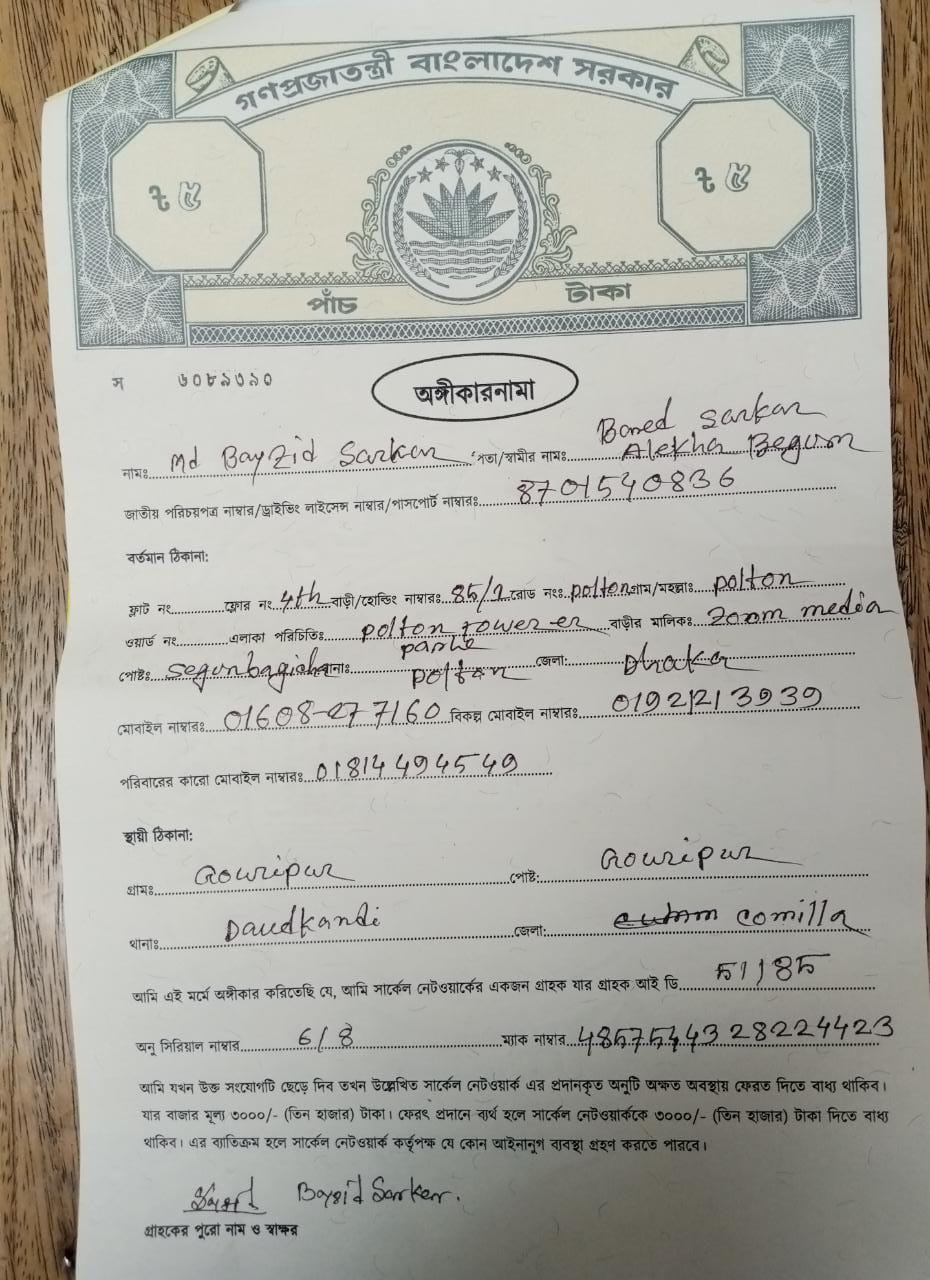 গণপ্রজাতন্ত্রী বাংলাদেশ সরকার
৳ ৫ ৳ ৫
পাঁচ টাকা
স ৬০৮৯৩৯০
অঙ্গীকারনামা
Boned Sarkar
নামঃ Md Bayzid Sarkar পিতা/স্বামীর নামঃ Alekha Begum
জাতীয় পরিচয়পত্র নাম্বার/ড্রাইভিং লাইসেন্স নাম্বার/পাসপোর্ট নাম্বারঃ 8701540836
বর্তমান ঠিকানা:
ফ্লাট নং ফ্লোর নং 4th বাড়ী/হোল্ডিং নাম্বারঃ 85/1 রোড নংঃ polton গ্রাম/মহল্লাঃ polton
ওয়ার্ড নং এলাকা পরিচিতিঃ polton tower er বাড়ীর মালিকঃ zoom media
pashe
পোষ্টঃ segunbagicha থানাঃ polton জেলা: Dhaka
মোবাইল নাম্বারঃ 01608-277160 বিকল্প মোবাইল নাম্বারঃ 01921213939
পরিবারের কারো মোবাইল নাম্বারঃ 01814494549
স্থায়ী ঠিকানা:
গ্রামঃ Gouripur পোষ্ট: Gouripur
থানাঃ Daudkandi জেলা: comilla
আমি এই মর্মে অঙ্গীকার করিতেছি যে, আমি সার্কেল নেটওয়ার্কের একজন গ্রাহক যার গ্রাহক আই ডি 51185
অনু সিরিয়াল নাম্বার 618 ম্যাক নাম্বার 4857544328224423
আমি যখন উক্ত সংযোগটি ছেড়ে দিব তখন উল্লেখিত সার্কেল নেটওয়ার্ক এর প্রদানকৃত অনুটি অক্ষত অবস্থায় ফেরত দিতে বাধ্য থাকিব।
যার বাজার মূল্য ৩০০০/- (তিন হাজার) টাকা। ফেরৎ প্রদানে ব্যর্থ হলে সার্কেল নেটওয়ার্ককে ৩০০০/- (তিন হাজার) টাকা দিতে বাধ্য
থাকিব। এর ব্যতিক্রম হলে সার্কেল নেটওয়ার্ক কর্তৃপক্ষ যে কোন আইনানুগ ব্যবস্থা গ্রহণ করতে পারবে।
Bayzid Sarker.
গ্রাহকের পুরো নাম ও স্বাক্ষর